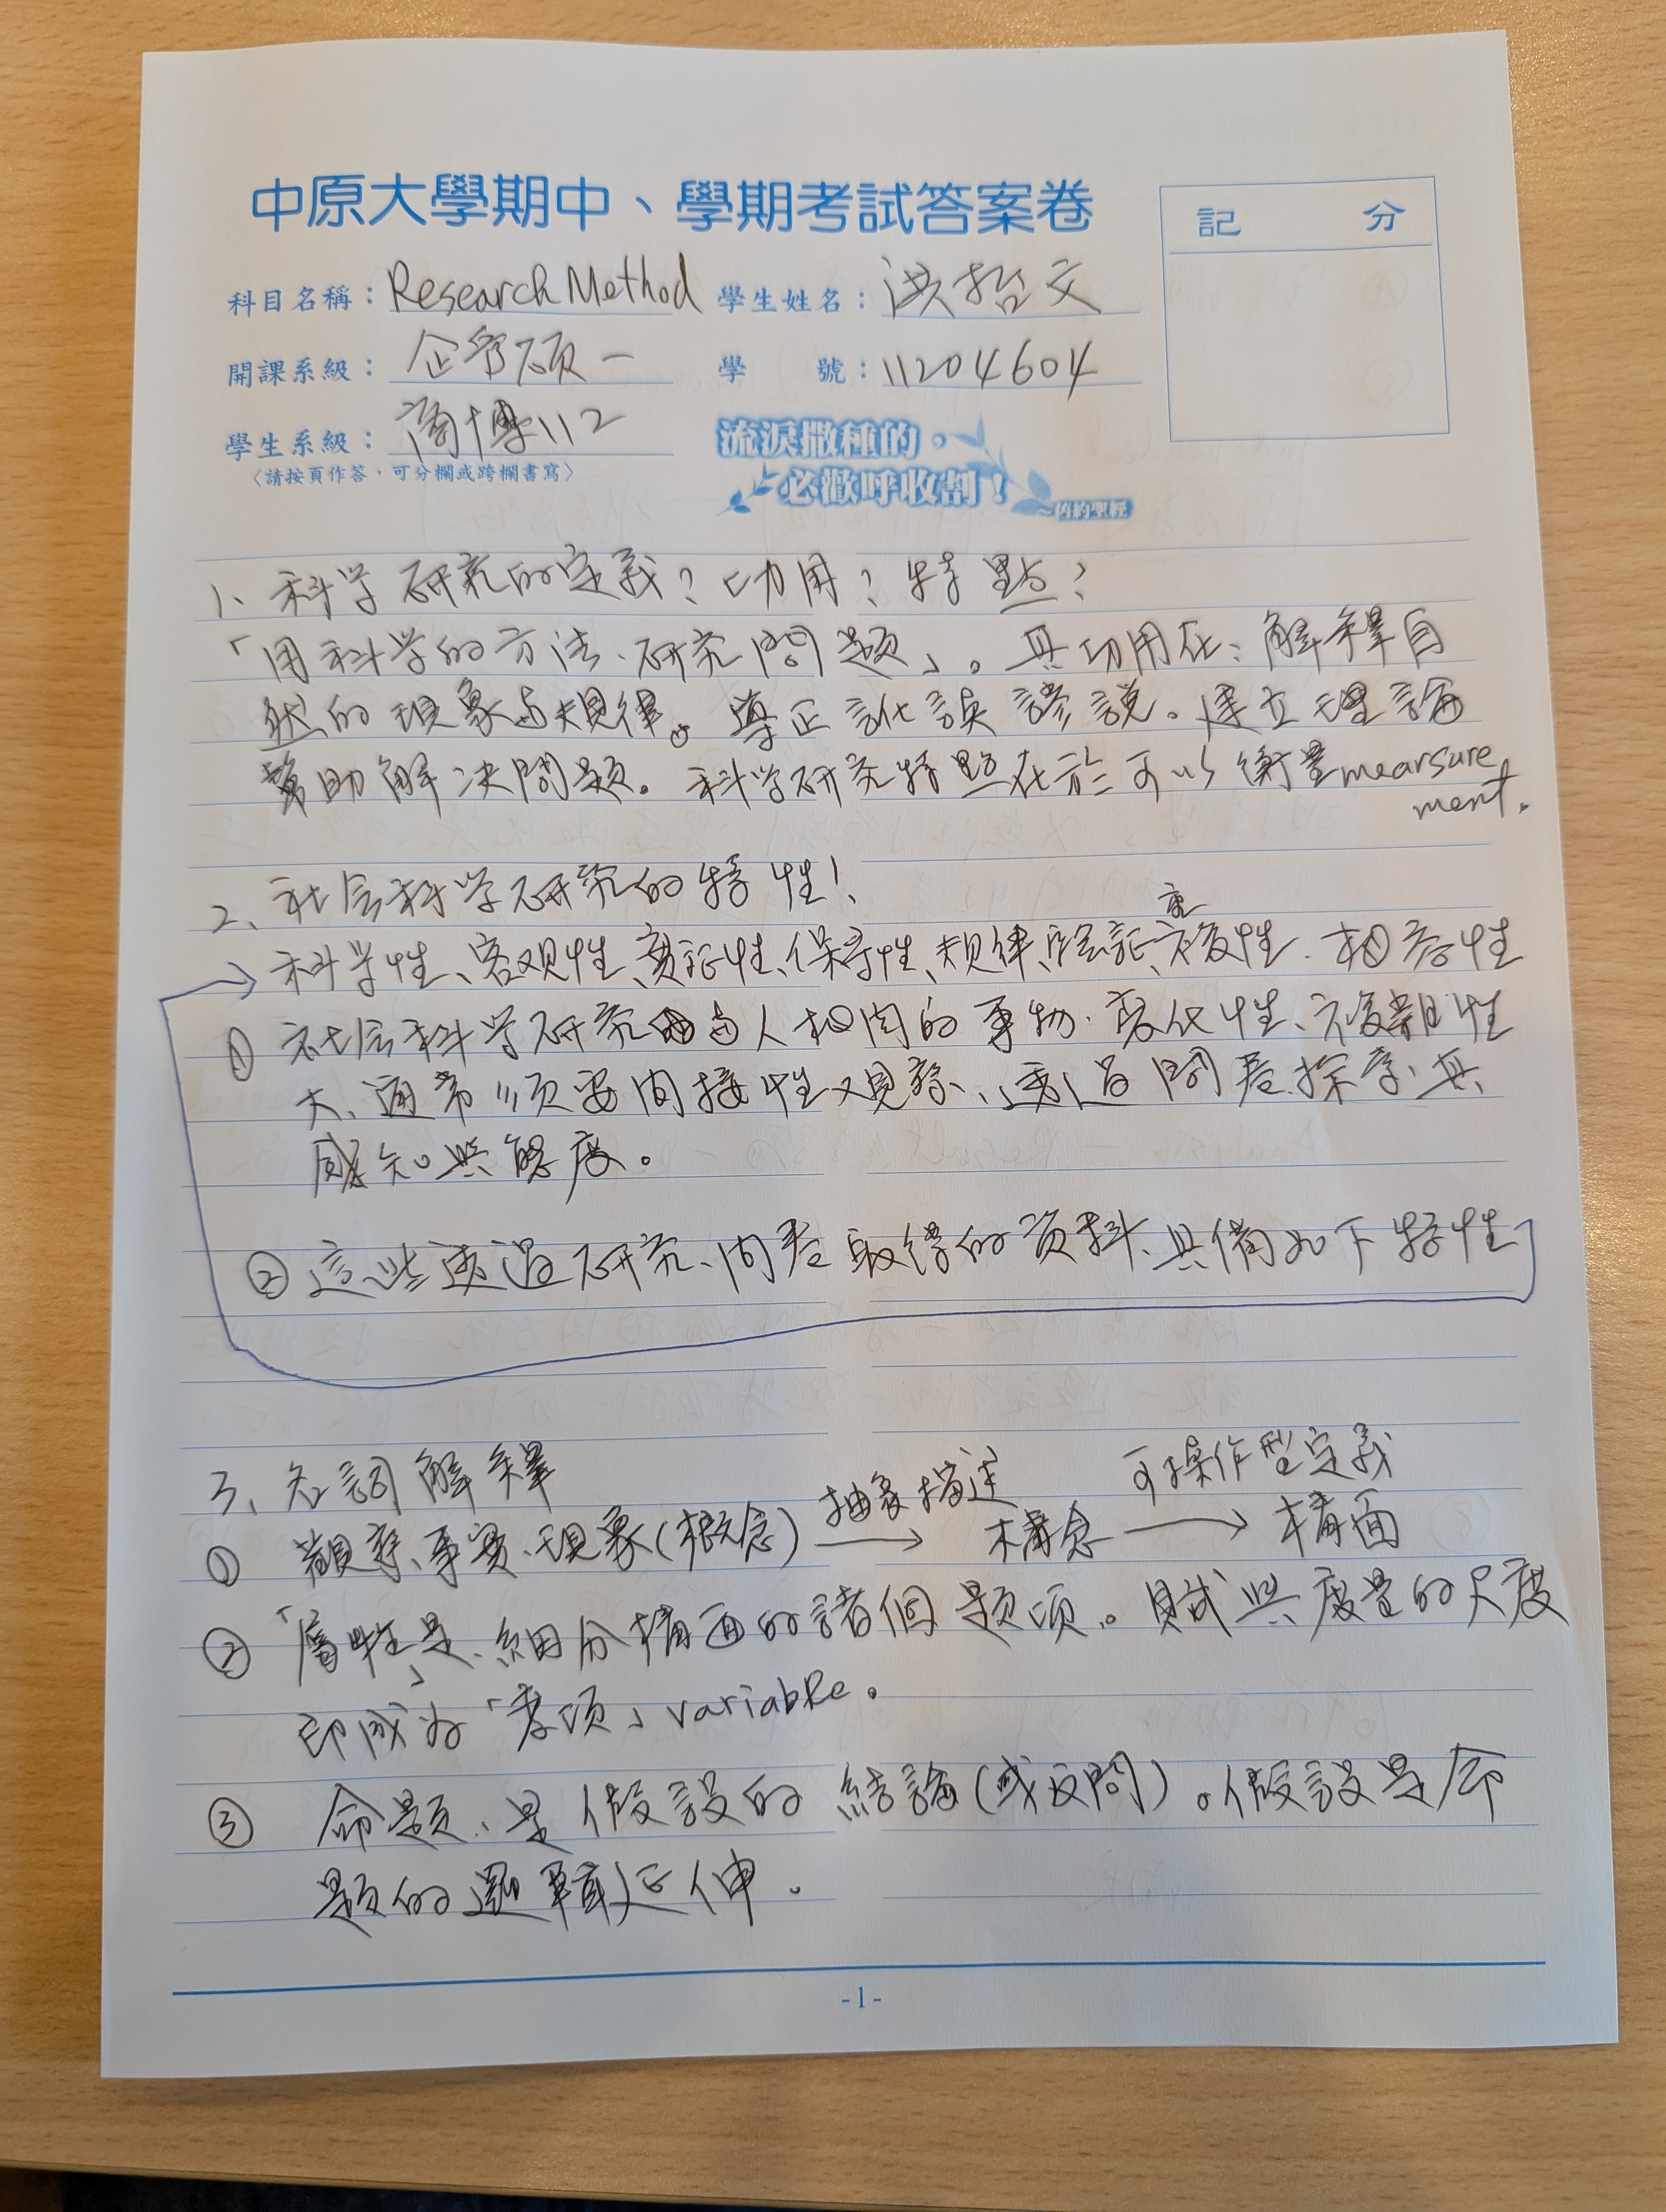 中原大學期中、學期考試答案卷
記 分
科目名稱：Research Method 學生姓名：洪招文
開課系級：企管碩一 學 號：11204604
學生系級：商博112
〈請按頁作答，可分欄或跨欄書寫〉
流淚撒種的，
必歡呼收割！
～舊約聖經
1、科学研究的定義？功用？特點？
「用科学的方法、研究問題」。其功用在：解釋自
然的現象与規律。導正訛誤謬説。建立理論
幫助解决問題。科学研究特點在於可以衡量mearsure
ment.
2、社会科学研究的特性！
→科学性、客观性、實証性、保守性、規律、驗証、重複性、相容性
① 社会科学研究由与人相関的事物、变化性、複雜性
大、通常須要間接性观察、透過問卷探索、其
感知與態度。
② 這些透過研究、問卷取得的資料、具備如下特性
3、名詞解釋
① 觀察、事實、現象(概念) 抽象描述→ 構念 可操作型定義→ 構面
② 「屬性」是、細分構面的諸個題項。賦與度量的尺度
即成为「变項」variable。
③ 命題、是假設的結論(或反問)。假設是命
題的邏輯延伸。
-1-